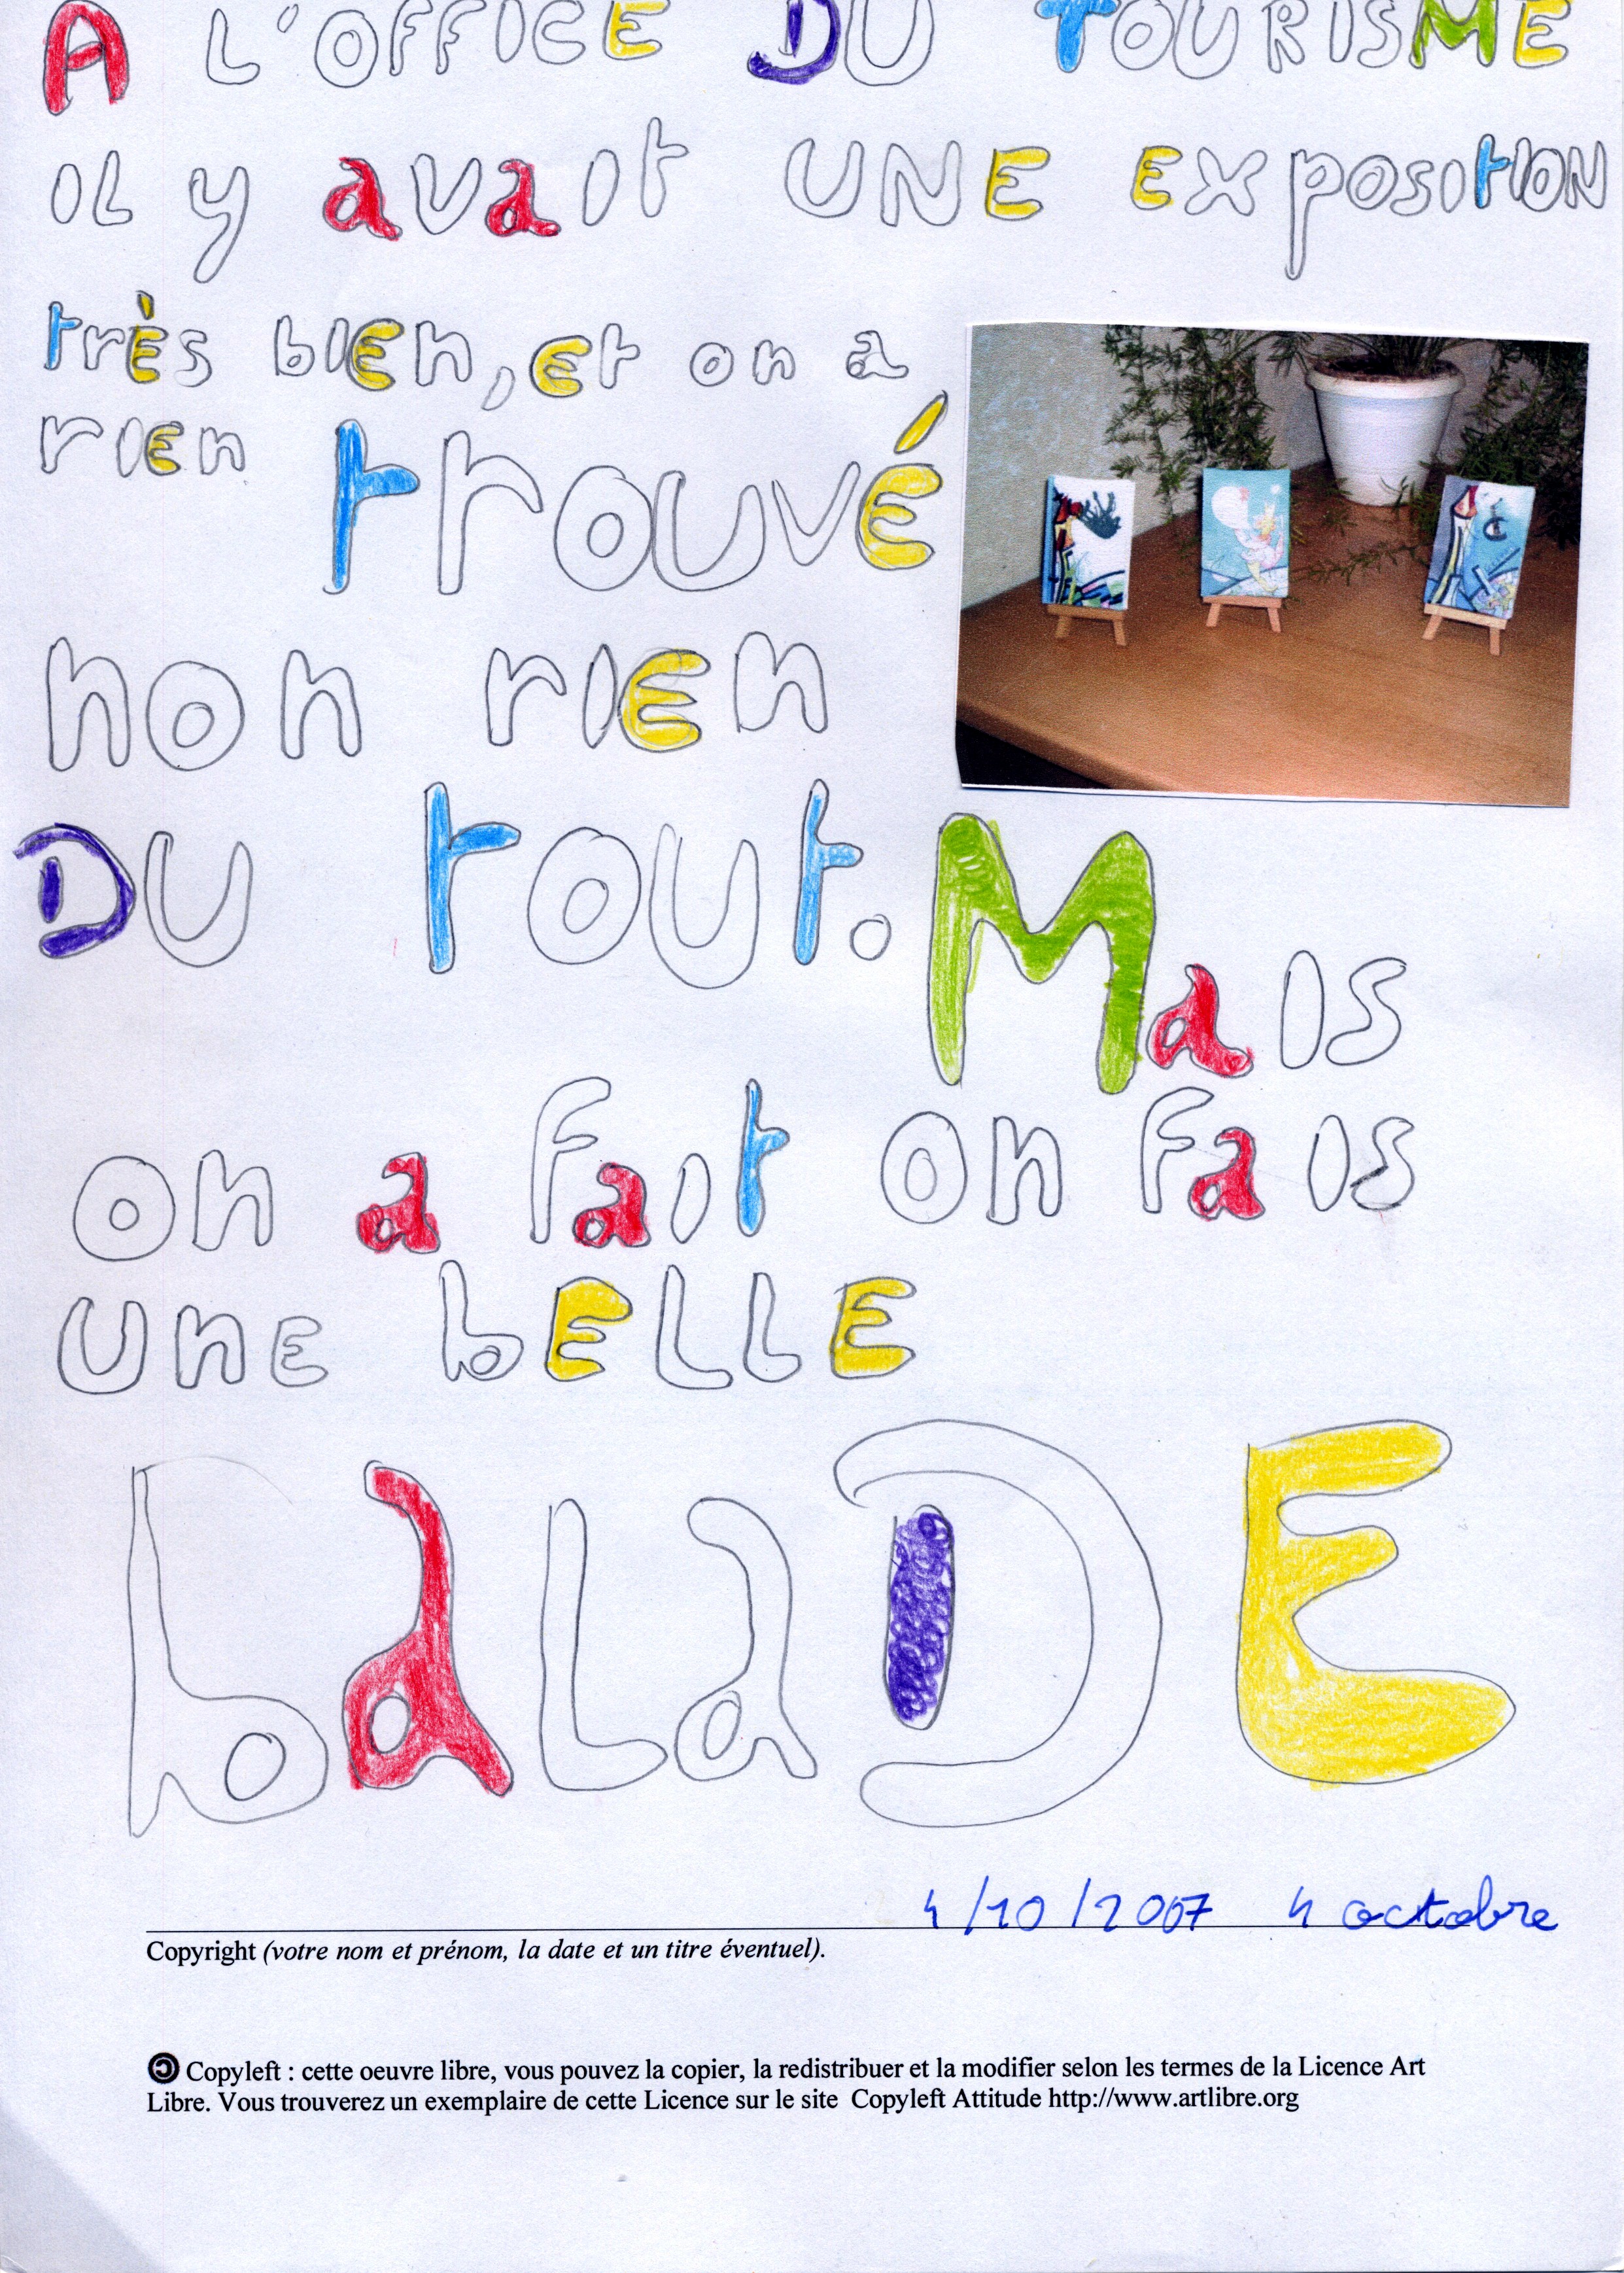 A L'OFFICE DU TOURISME
il y avait UNE Exposition
très bien, et on a
rien trouvé
non rien
DU tout. Mais
on a fait on fais
UnE bELLE
baLaDE
4/10/2007 4 octobre
Copyright (votre nom et prénom, la date et un titre éventuel).
Copyleft : cette oeuvre libre, vous pouvez la copier, la redistribuer et la modifier selon les termes de la Licence Art
Libre. Vous trouverez un exemplaire de cette Licence sur le site Copyleft Attitude http://www.artlibre.org